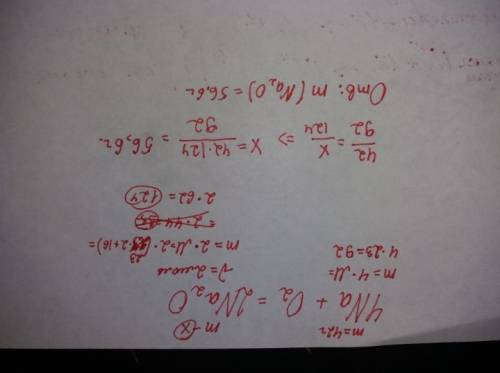 m=42г m-x
4Na + O₂ = 2Na₂O
m=4·M= ν=2моль
4·23=92 m=2·M=2·(23·2+16)=
=2·44=
2·62=124
42/92 = x/124 ⇒ x = 42·124/92 = 56,6г.
Отв: m(Na₂O)=56,6г